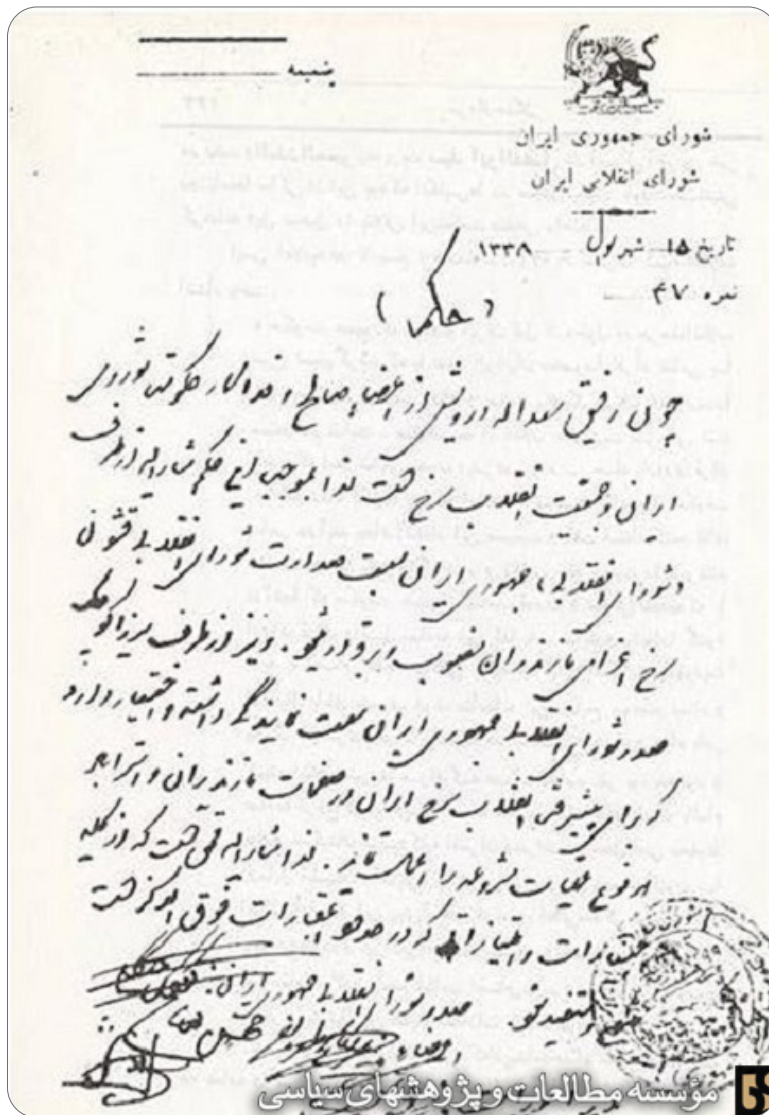 شورای جمهوری ایران
شورای انقلابی ایران
پنجشنبه
تاریخ ۱۵ شهر اول ۱۳۳۸
نمره ۴۷
(حکم)
چون رفیق اسداله درویش از اعضاء صالح و فداکار حکومت شوروی
ایران و جمعیت انقلاب سرخ است لذا بموجب این حکم مشارالیه از طرف
شورای انقلابی جمهوری ایران بسمت صدارت شورای انقلابی قشونی
سرخ اعزامی مازندران منصوب و برقرار میشود. و نیز از طرف میرزا کوچک
صدر شورای انقلابی جمهوری ایران سمت نمایندگی داشته و اختیار دارد
که برای پیشرفت انقلاب سرخ ایران در صفحات مازندران و استراباد
هر نوع اقدامات مشروعه را عملی نماید. لذا مشارالیه است که از کلیه
اعتبارات و امتیازات که در حدود اعتبارات فوق الذکر است
استفاده نماید. صدر شورای انقلابی جمهوری ایران
اعضاء
مؤسسه مطالعات و پژوهشهای سیاسی